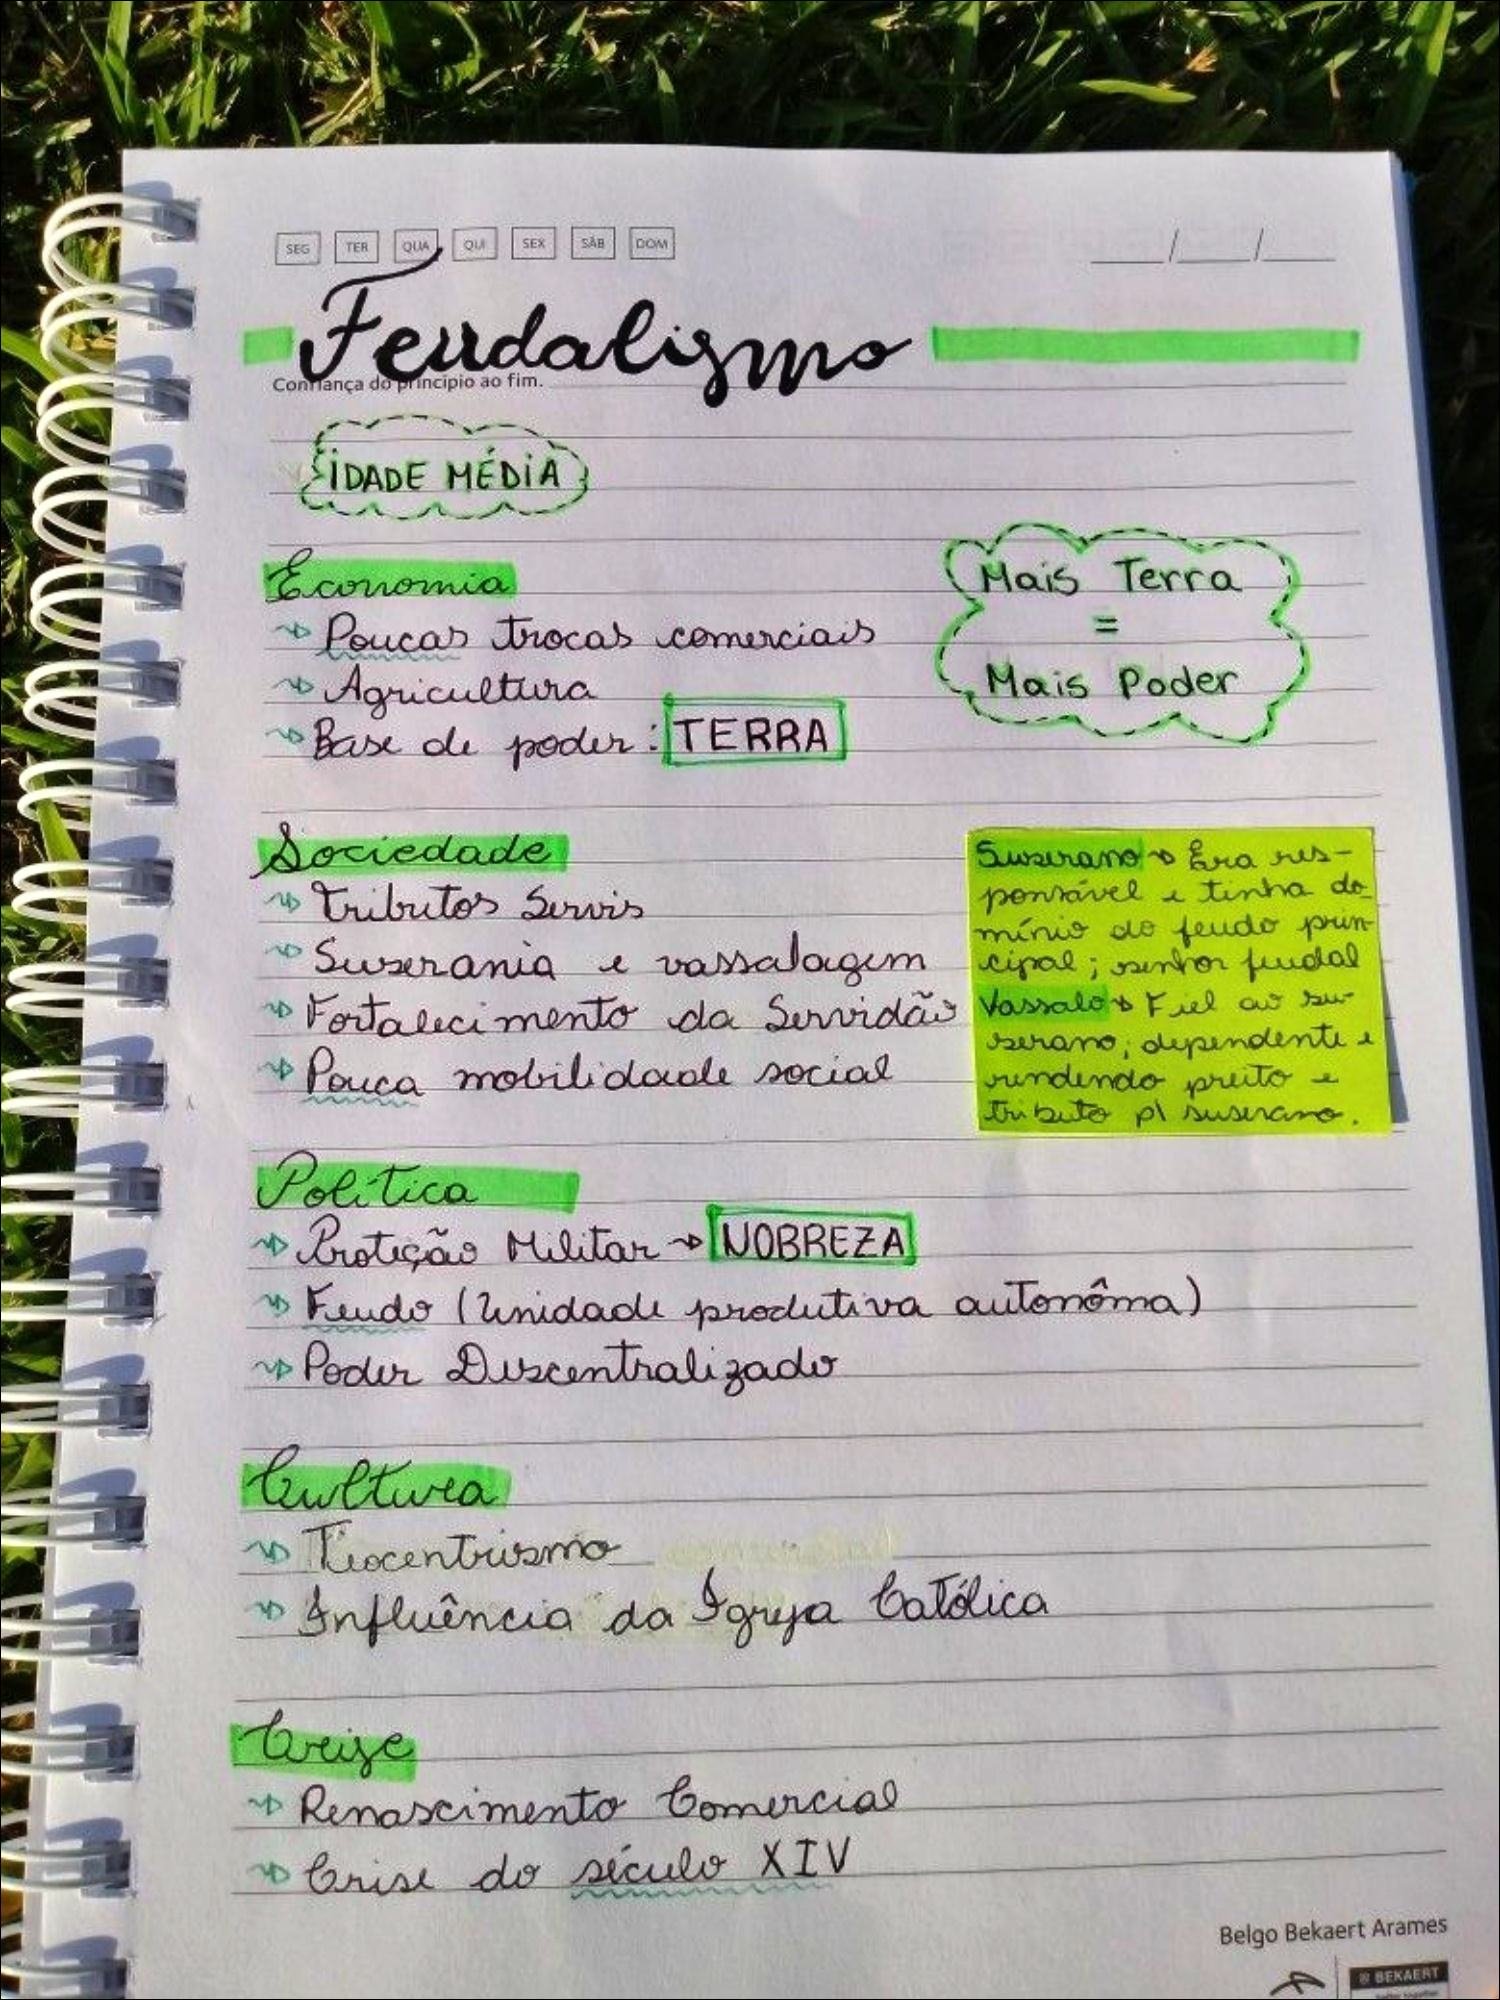 SEG TER QUA QUI SEX SÁB DOM
___/___/___
Feudalismo
Confiança do princípio ao fim.
IDADE MÉDIA
Economia
Poucas trocas comerciais
Agricultura
Base de poder: TERRA
Mais Terra
=
Mais Poder
Sociedade
Tributos Servis
Suserania e vassalagem
Fortalecimento da Servidão
Pouca mobilidade social
Suserano → Era res-
ponsável e tinha do-
mínio do feudo prin-
cipal; senhor feudal
Vassalo → Fiel ao su-
serano; dependente e
rendendo preito e
tributo p\ suserano.
Política
Proteção Militar → NOBREZA
Feudo (Unidade produtiva autonôma)
Poder Descentralizado
Cultura
Teocentrismo
Influência da Igreja Católica
Crise
Renascimento Comercial
Crise do século XIV
Belgo Bekaert Arames
BEKAERT
better together